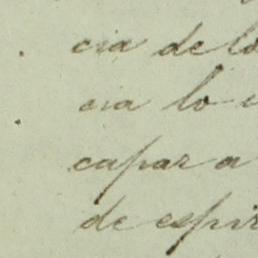 cia de lo
cia lo
capar a
de espir